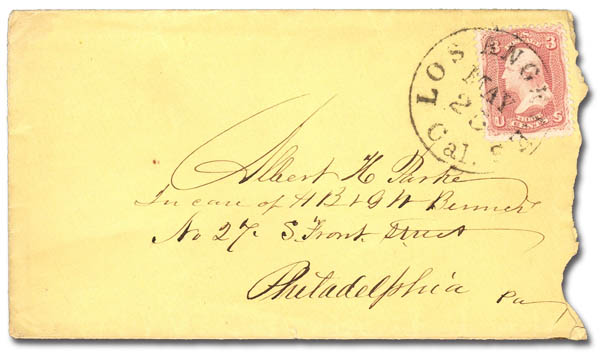 LOS ANGELES
MAY
23
Cal.
3 3
U S
THREE CENTS
Albert H Parke
In care of H B & G W Benners
No 27. S. Front. Street
Philadelphia Pa